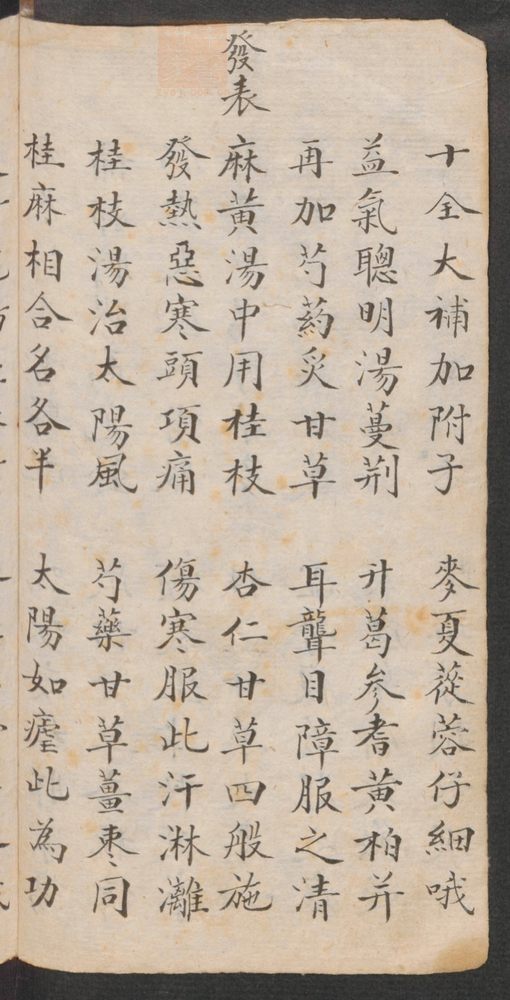 十全大補加附子　麥夏蓯蓉仔細哦
益氣聰明湯蔓荆　升葛参耆黄柏并
再加芍葯炙甘草　耳聾目障服之清
發表
麻黄湯中用桂枝　杏仁甘草四般施
發熱惡寒頭項痛　傷寒服此汗淋漓
桂枝湯治太陽風　芍藥甘草薑枣同
桂麻相合名各半　太陽如瘧此為功